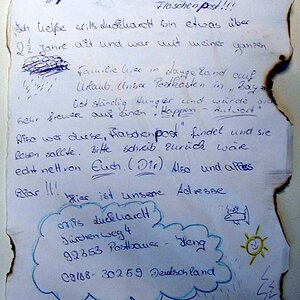 Flaschenpost!!!
Ich heiße bin etwas über
2½ Jahre alt und war mit meiner ganzen
Familie hier in Langeland auf
Urlaub. Unser Postkasten in
ständig Hunger und würde
sehr freuen auf einen „Happen - Antwort"
Also wer diese „Flaschenpost" findet und sie
lesen sollte. Bitte schreib zurück wäre
echt nett von Euch (Dir) Also und alles
klar!!! Hier ist unsere Adresse
Luckhardt
4
92353 Postbauer - Heng
09188-30259 Deutschland